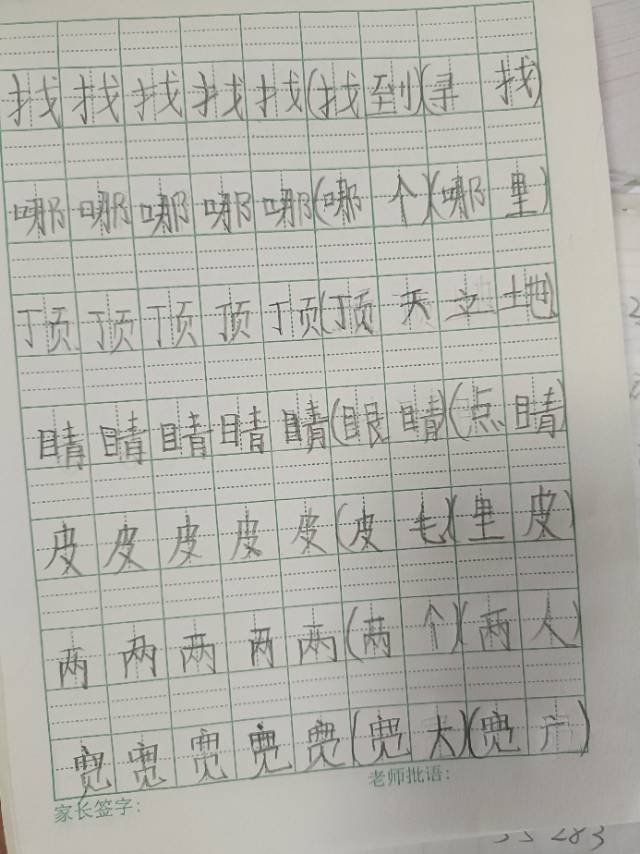 找 找 找 找 找 (找 到) (寻 找)
哪 哪 哪 哪 哪 (哪 个) (哪 里)
顶 顶 顶 顶 顶 (顶 天 立 地)
睛 睛 睛 睛 睛 (眼 睛) (点 睛)
皮 皮 皮 皮 皮 (皮 毛) (里 皮)
两 两 两 两 两 (两 个) (两 人)
宽 宽 宽 宽 宽 (宽 大) (宽 广)
家长签字: 老师批语:
283